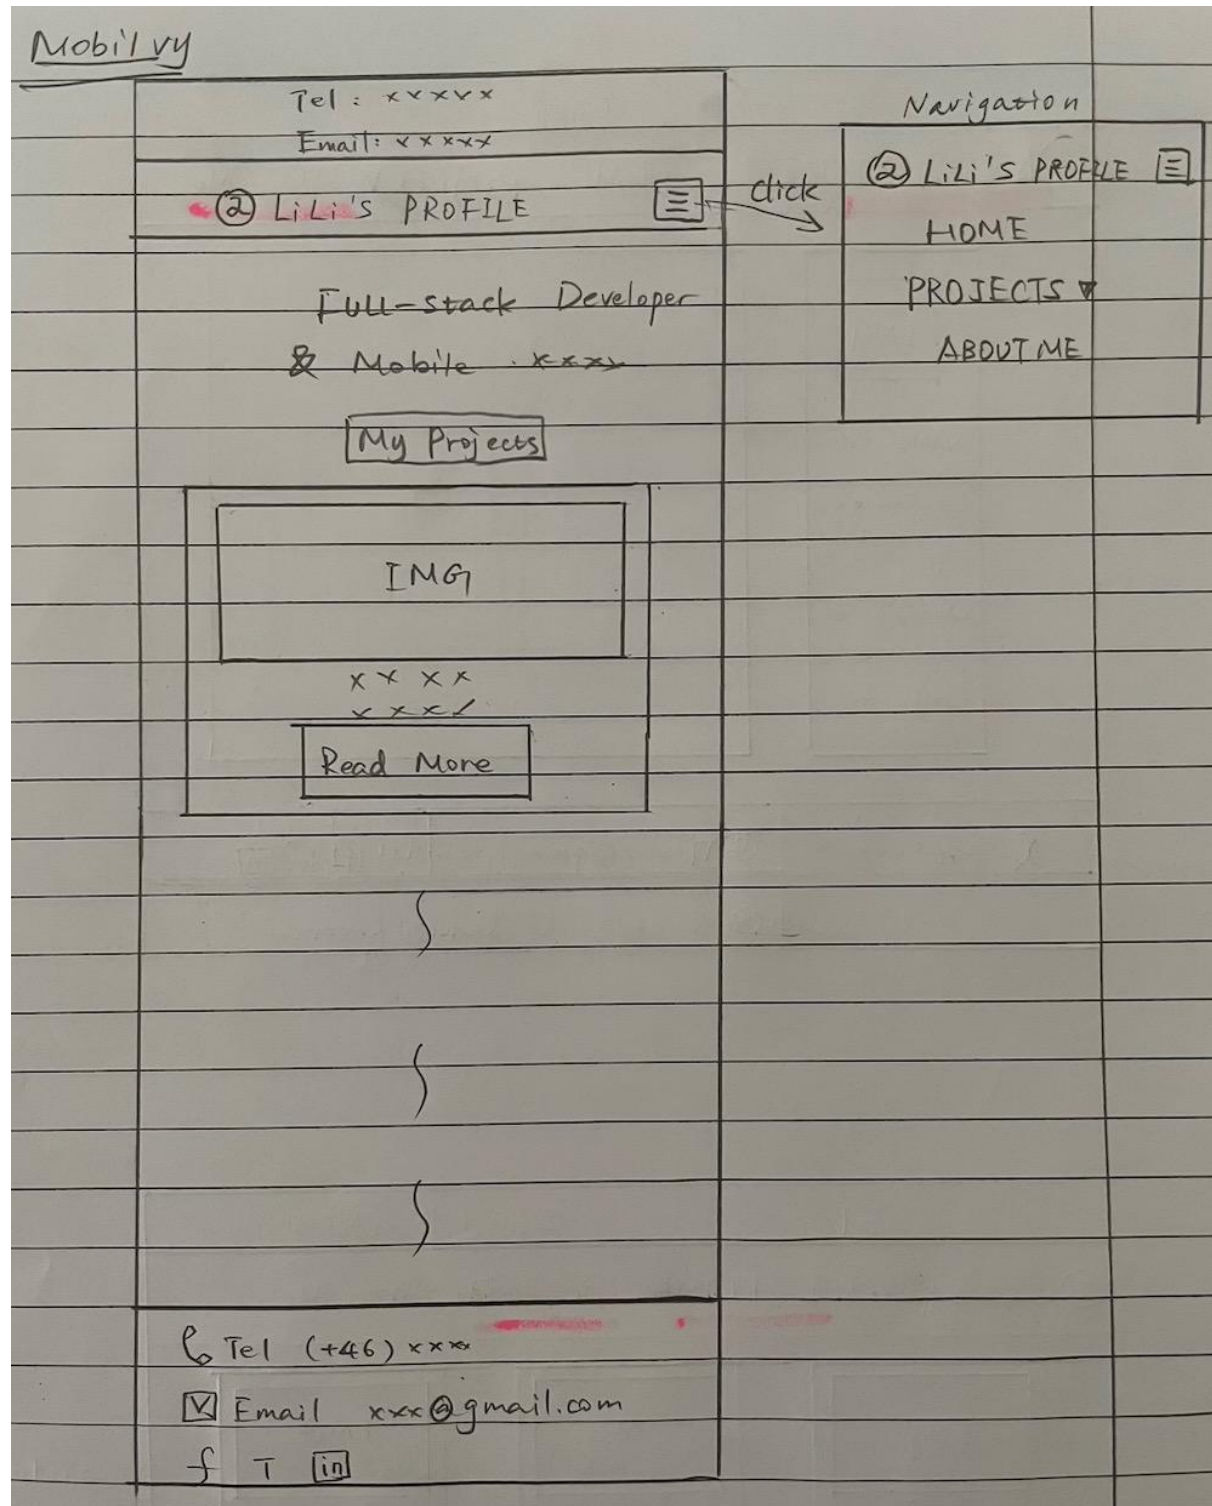 Mobil vy
Tel : xxxxx
Email: xxxxx
② LiLi's PROFILE
click
Full-stack Developer
& Mobile xxxx
My Projects
IMG
xxxx
xxxx
Read More
Tel (+46) xxxx
Email xxx@gmail.com
f T in
Navigation
② LiLi's PROFILE
HOME
PROJECTS ▼
ABOUT ME